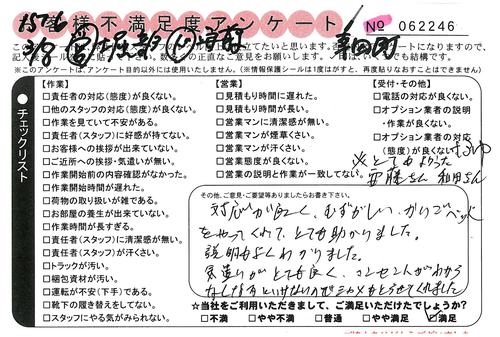 お客様不満足度アンケート No 062246
※このアンケートは、アンケート目的以外には使用いたしません。(※情報保護シールは1度はがすと、再度貼りなおすことはできません)
チェックリスト
【作業】
□責任者の対応(態度)が良くない。
□他のスタッフの対応(態度)が良くない。
□作業を見ていて不安がある。
□責任者(スタッフ)に好感が持てない。
□お客様への挨拶が出来ていない。
□ご近所への挨拶・気遣いが無い。
□作業開始前の内容確認がなかった。
□作業開始時間が遅れた。
□荷物の取り扱いが雑である。
□お部屋の養生が出来ていない。
□作業時間が長すぎる。
□責任者(スタッフ)に清潔感が無い。
□責任者(スタッフ)が汗くさい。
□トラックが汚い。
□梱包資材が汚い。
□運転が不安(下手)である。
□靴下の履き替えをしてない。
□スタッフにやる気がみられない。
【営業】
□見積もり時間に遅れた。
□見積もり時間が長い。
□営業マンに清潔感が無い。
□営業マンが煙草くさい。
□営業マンが汗くさい。
□営業態度が良くない。
□営業の説明と作業が一致してない。
【受付・その他】
□電話の対応が良くない。
□オプション業者の説明
・作業が良くない。
□オプション業者の対応
(態度)が良くない。
※とてもよかった
安藤さん 和田さん
その他、ご意見・ご要望等ありましたらお書き下さい。
対応が良く、むずかしいかいごベッド
をやってくれて、とても助かりました。
説明もよくわかりました。
気遣いがとても良く、コンセントがわから
なくなるといけないのでメモをとらせてくれました
☆当社をご利用いただきまして、ご満足いただけたでしょうか?
□不満 □やや不満 □普通 □やや満足 ☑満足